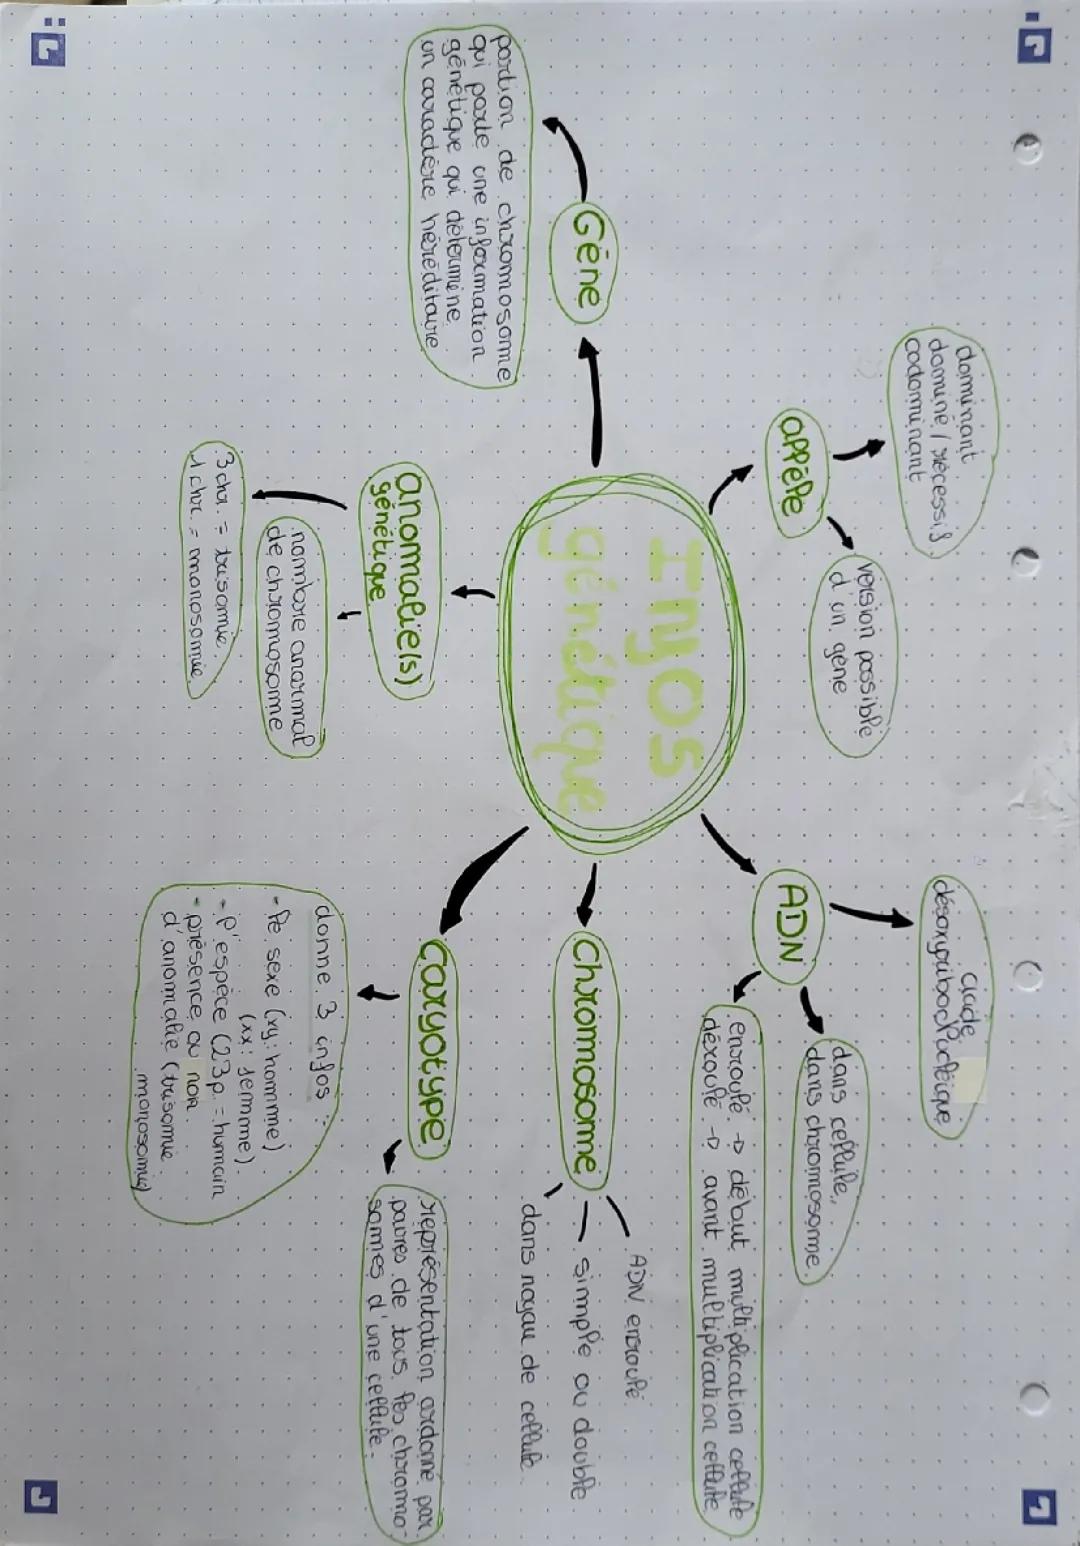 Infos
génétique
Gène
portion de chromosome
qui porte une information
génétique qui détermine
un caractère héréditaire
allèle
dominant
dominé / récessif
codominant
version possible
d'un gène
ADN
acide
désoxyribonucléique
dans cellule,
dans chromosome
enroulé → début multiplication cellule
déroulé → avant multiplication cellule
Chromosome
ADN enroulé
simple ou double
dans noyau de cellule
Caryotype
représentation ordonné par
paires de tous les chromo-
somes d'une cellule.
donne 3 infos :
- le sexe (xy: homme)
(xx: femme)
- l'espèce (23p. = humain
- présence ou non
d'anomalie (trisomie
monosomie)
anomalie(s)
génétique
nombre anormal
de chromosome
3 chr. = trisomie
1 chr. = monosomie